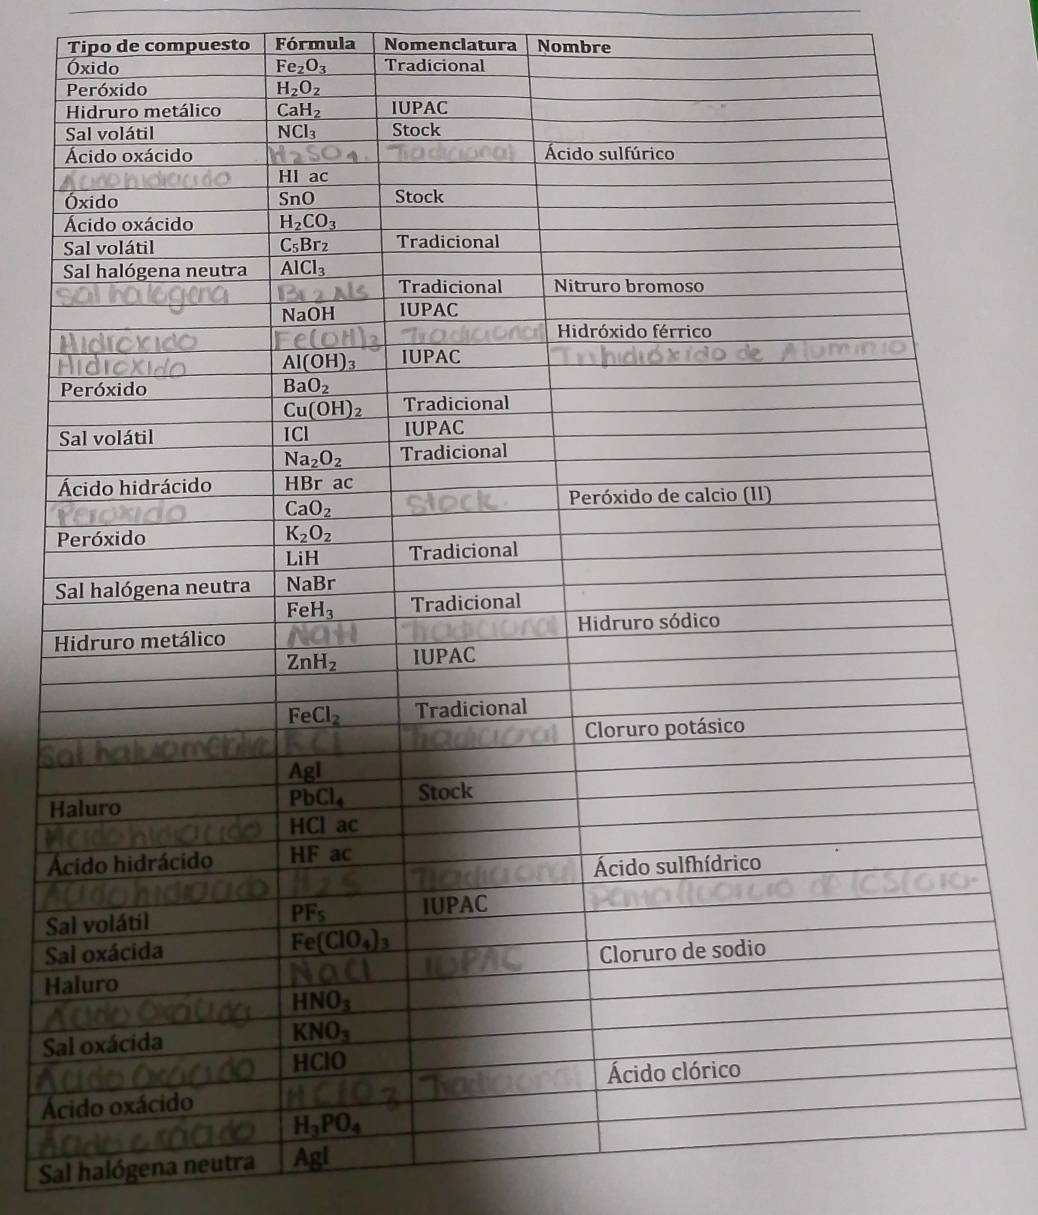 Tipo de compuesto Fórmula Nomenclatura Nombre
Óxido Fe₂O₃ Tradicional
Peróxido H₂O₂
Hidruro metálico CaH₂ IUPAC
Sal volátil NCl₃ Stock
Ácido oxácido H₂SO₄. Tradicional Ácido sulfúrico
Acido hidracido HI ac
Óxido SnO Stock
Ácido oxácido H₂CO₃
Sal volátil C₅Br₂ Tradicional
Sal halógena neutra AlCl₃
Sal halogena Tradicional Nitruro bromoso
NaOH IUPAC
Hidroxido Fe(OH)₃ Tradicional Hidróxido férrico
Hidroxido Al(OH)₃ IUPAC Trihidróxido de Aluminio
Peróxido BaO₂
Cu(OH)₂ Tradicional
Sal volátil ICl IUPAC
Na₂O₂ Tradicional
Ácido hidrácido HBr ac
Peroxido CaO₂ Stock. Peróxido de calcio (II)
Peróxido K₂O₂
LiH Tradicional
Sal halógena neutra NaBr
FeH₃ Tradicional
Hidruro metálico NaH Tradicional Hidruro sódico
ZnH₂ IUPAC
FeCl₂ Tradicional
Sal KCl Tradicional Cloruro potásico
AgI
Haluro PbCl₄ Stock
Acido hidracido HCl ac
Ácido hidrácido HF ac
Acido hidracido H₂S Tradicional Ácido sulfhídrico
Sal volátil PF₅ IUPAC
Sal oxácida Fe(ClO₄)₃
Haluro NaCl IUPAC Cloruro de sodio
Acido Oxacido HNO₃
Sal oxácida KNO₃
Acido Oxacido HClO
Ácido oxácido HClO₃ Tradicional Ácido clórico
Acido oxacido H₃PO₄
Sal halógena neutra AgI